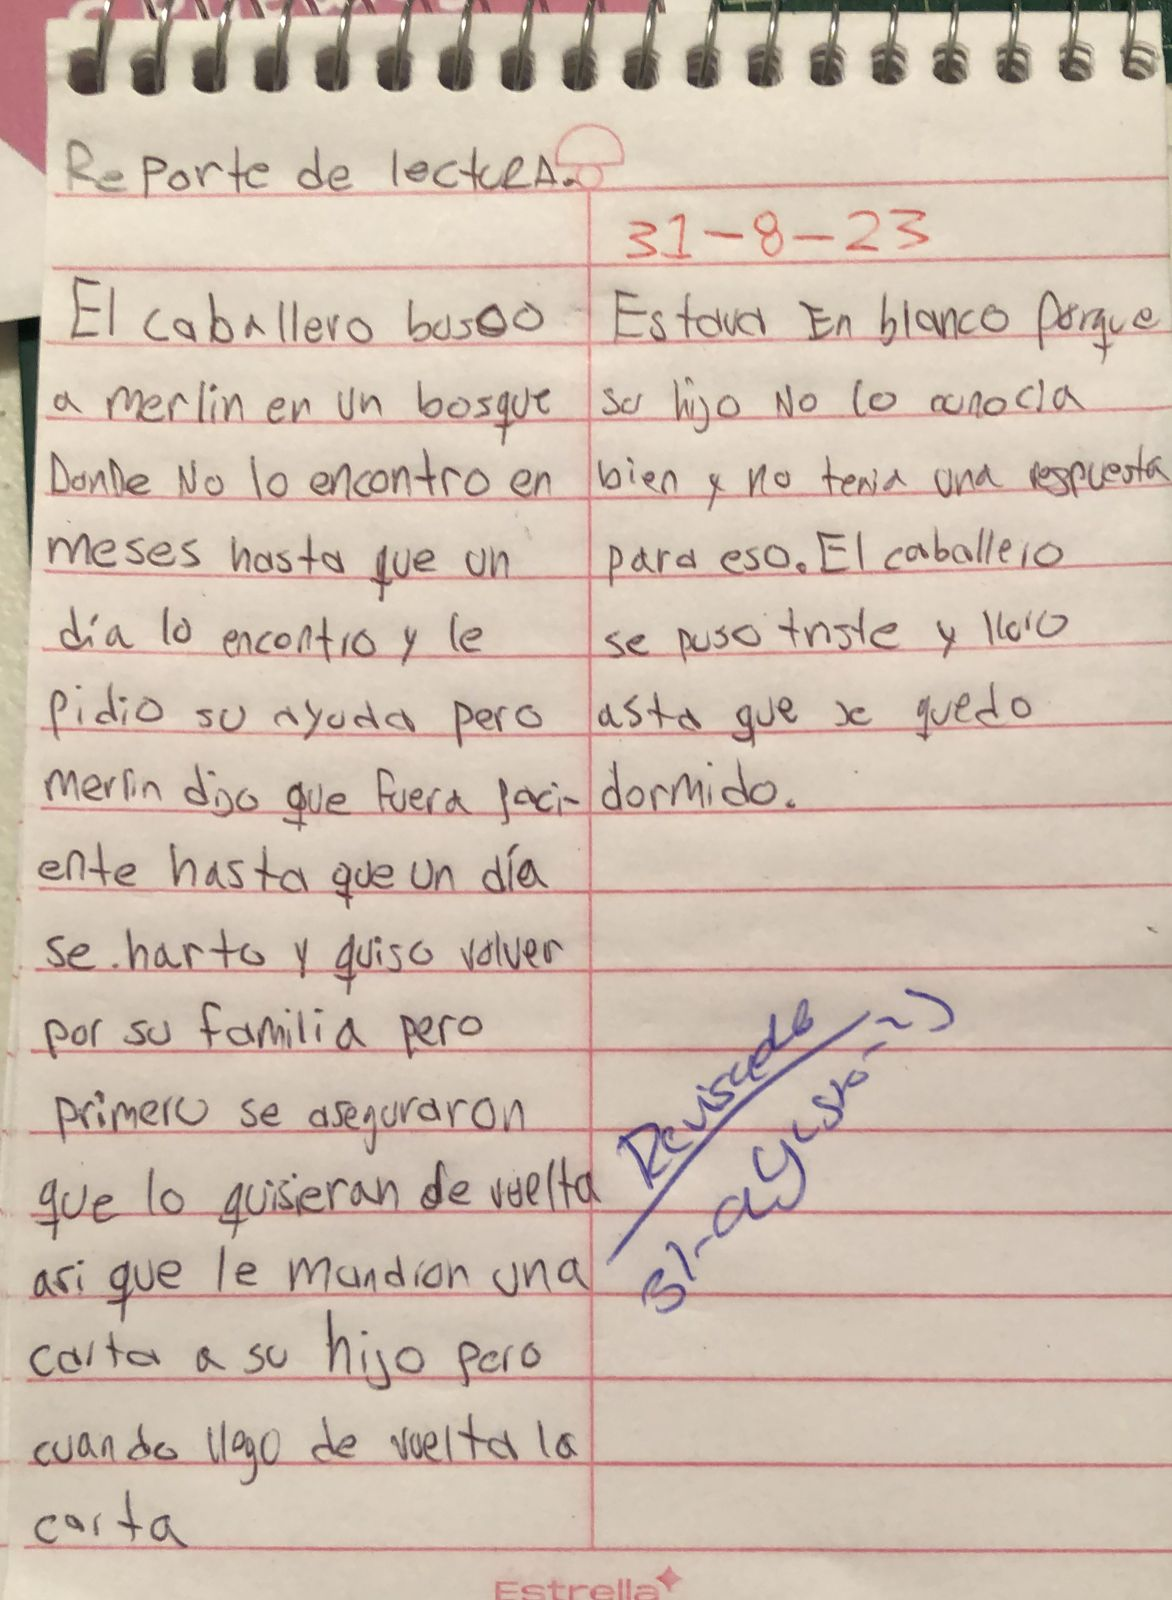 Reporte de lectuRA.
31-8-23
El caballero busco
a merlin en un bosque
DonDe No lo encontro en
meses hasta que un
día lo encontro y le
pidio su ayuda pero
merlin dijo que fuera paci-
ente hasta que un día
se harto y quiso volver
por su familia pero
primero se aseguraron
que lo quisieran de vuelta
asi que le mandron una
carta a su hijo pero
cuando llego de vuelta la
carta
Estava En blanco porque
su hijo No lo conocia
bien y no tenia una respuesta
para eso. El caballero
se puso triste y lloro
asta que se quedo
dormido.
Revisado
31-agosto-23
Estrella